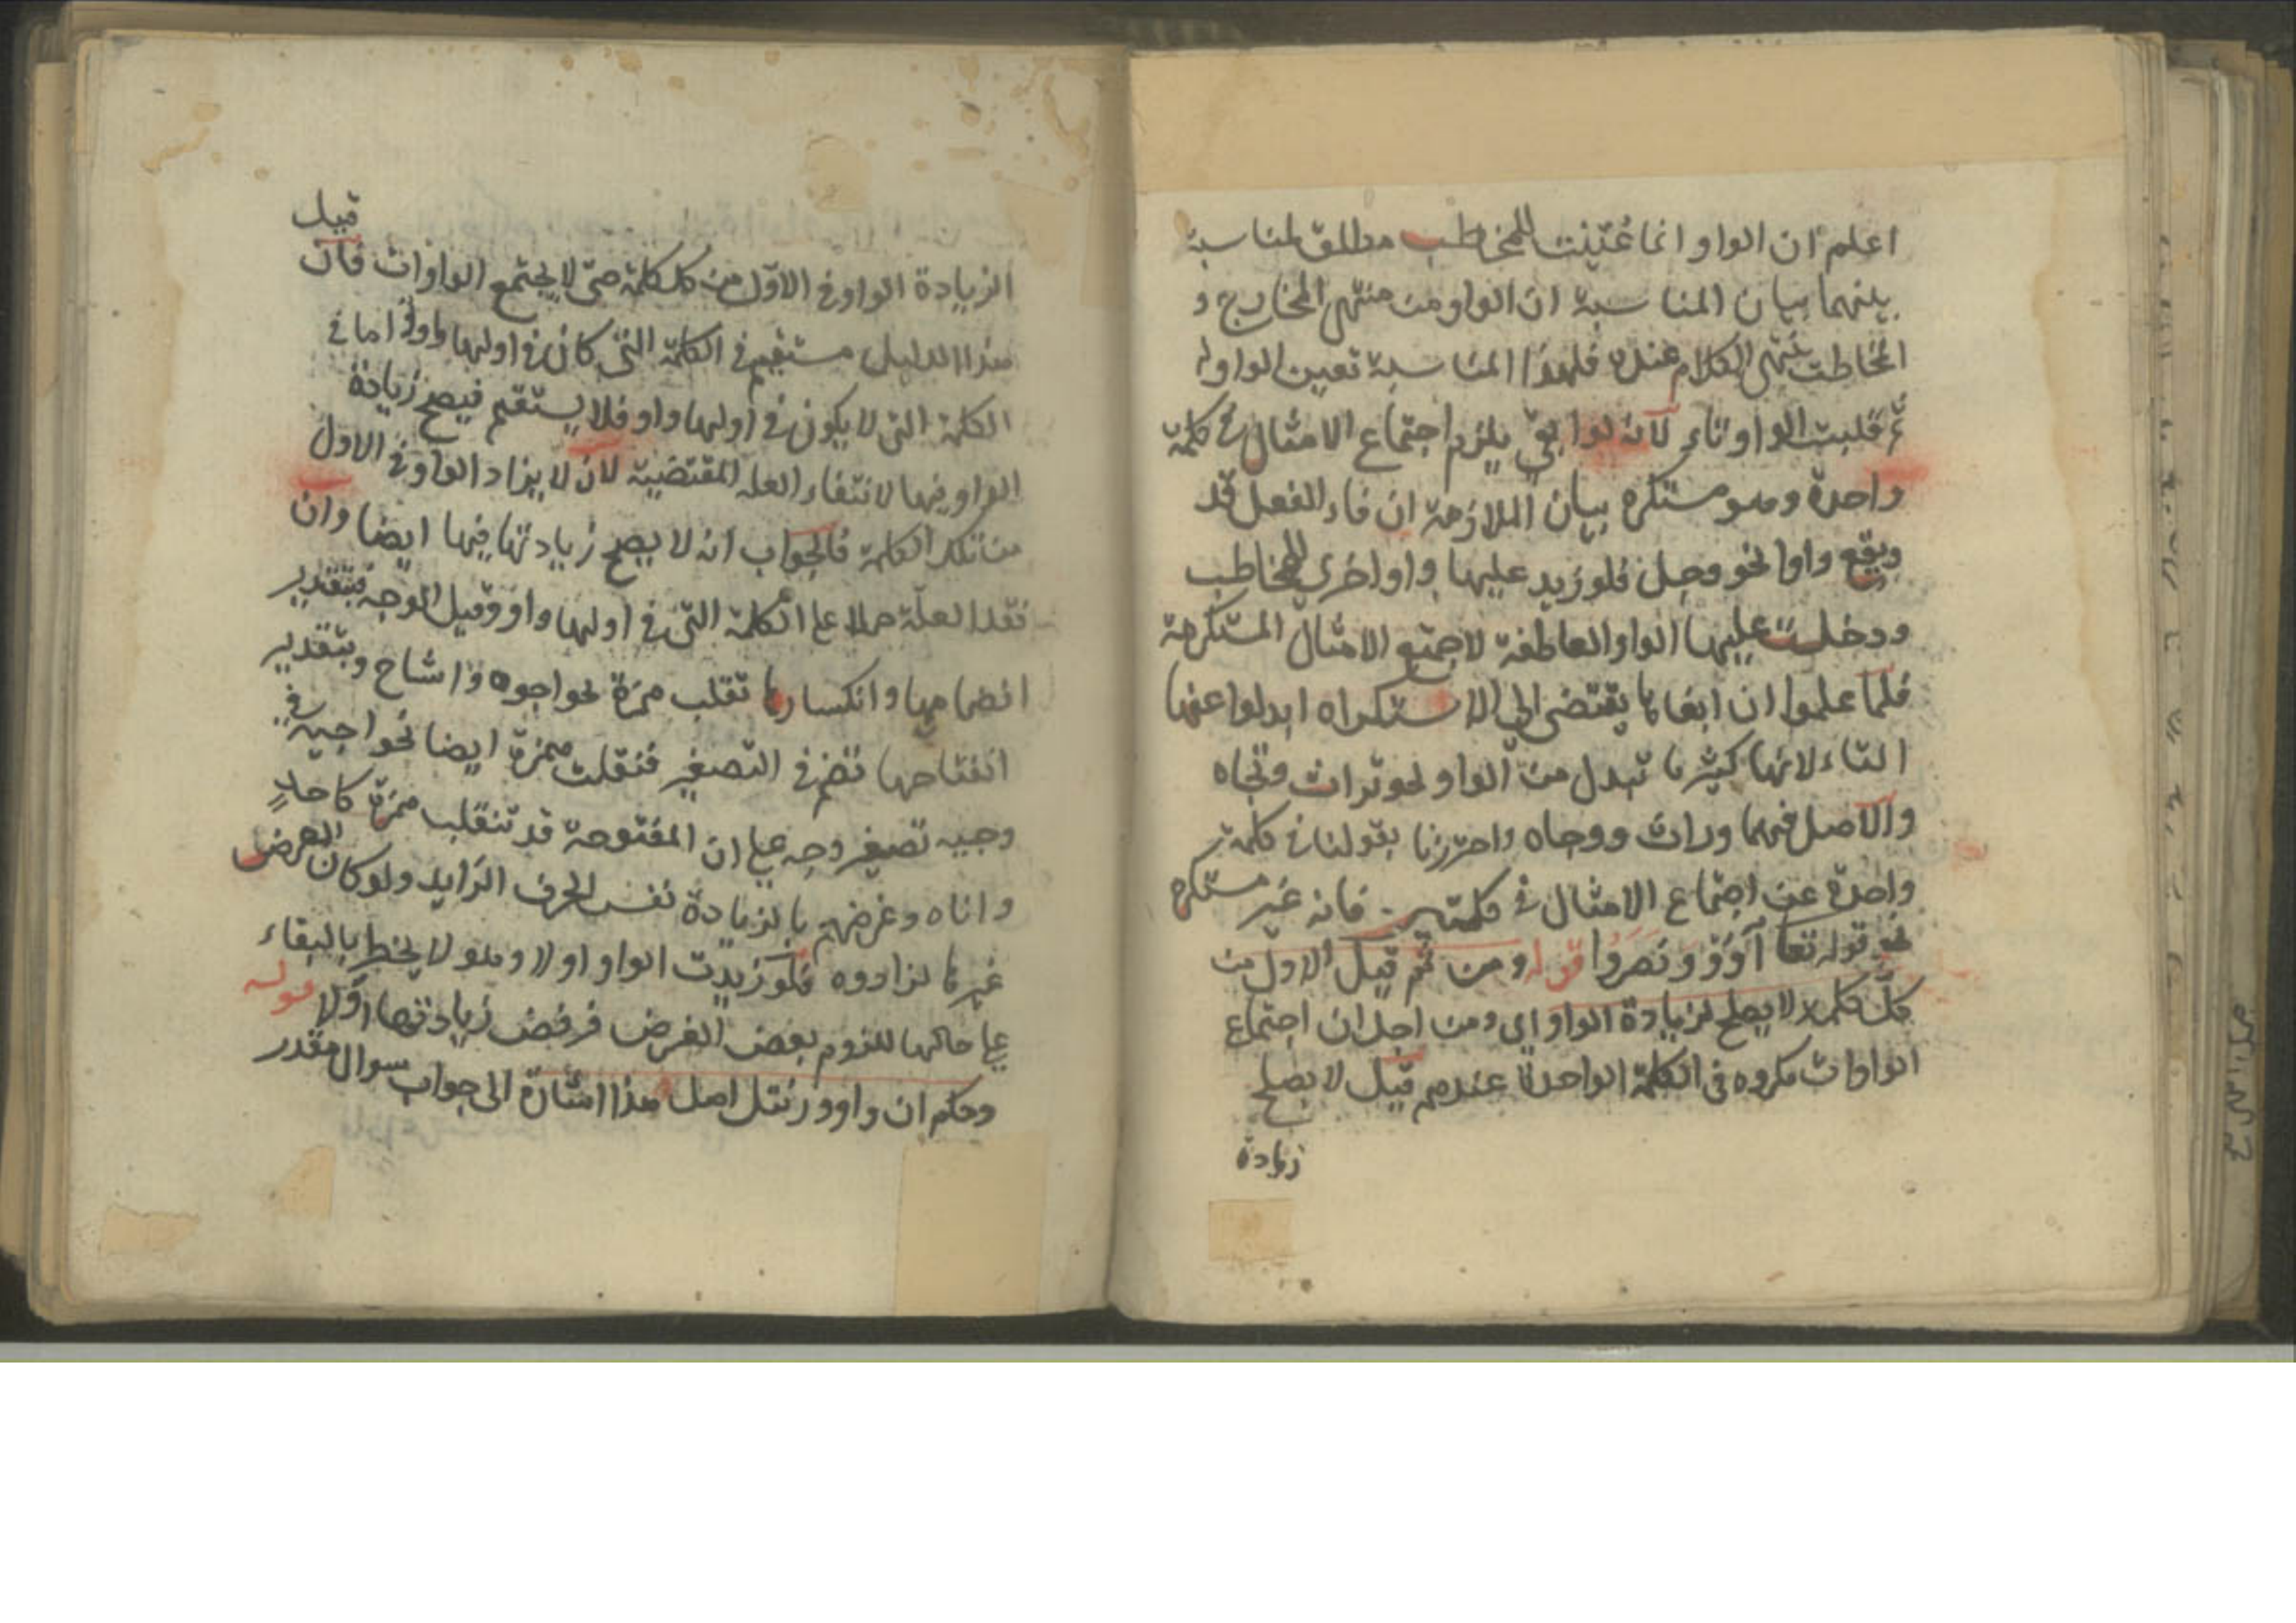 اعلم ان الواو انما عُيّنت للمخاطب مطلق لمناسبة
بينهما بيان المناسبة ان الواو من منتهى المخارج و
المخاطب ينتهى الكلام عنده فلهذا المناسبة تعين الواو له
ثم قلبت الواو تاء لانه لوابقى يلزم اجتماع الامثال فى كلمة
واحدة وهو مستكره بيان الملازمة ان فاء الفعل قد
ويقع واوا نحو وجل فلو زيد عليها واو اخرى للمخاطب
ودخلت عليها الواو العاطفة لاجتمع الامثال المستكرهة
فلما علموا ان ابقاءها يقتضى الى الاستكراه ابدلوا عنها
التاء لانها كثيرا ما تبدل من الواو نحو تراث وتجاه
والاصل فيهما وراث ووجاه واحترزنا بقولنا فى كلمة
واحدة عن اجتماع الامثال فى كلمتين فانه غير مستكره
نحو قوله تعا آوَوْ وَنَصَرُوا قوله ومن ثم قيل الاول من
كل كلمة لا يصلح لزيادة الواو اى ومن اجل ان اجتماع
الواوات مكروه فى الكلمة الواحدة عندهم قيل لا يصلح
زيادة
قيل
الزيادة الواو فى الاول من كل كلمة حتى لا يجتمع الواوات فان
هذا الدليل مستقيم فى الكلمة التى كان فى اولها واو اما فى
الكلمة التى لا يكون فى اولها واو فلا يستقيم فيصح زيادة
الواو فيها لانتفاء العلة المقتضية لان لا يزاد الواو فى الاول
من تلك الكلمة فالجواب انه لا يصح زيادتها فيها ايضا وان
فقد العلة حملا على الكلمة التى فى اولها واو وقيل الوجه بتقدير
انضمامها وانكسارها تقلب همزة نحو اجوه واشاح وبتقدير
انفتاحها تضم فى التصغير فنقلت همزة ايضا نحو اجيه فى
وجيه تصغير وجه على ان المفتوحة قد تنقلب همزة كاحد
واناه وغرضهم بالزيادة نفس الحرف الزايد ولو كان الغرض
غيرها لزادوه فلو زيدت الواو اولا وهو لا يخط بالبقاء
على حالها للزوم بعض الغرض فرفض زيادتها اولا قوله
وحكم ان واو ورنتل اصل هذا اشارة الى جواب سوال مقدر